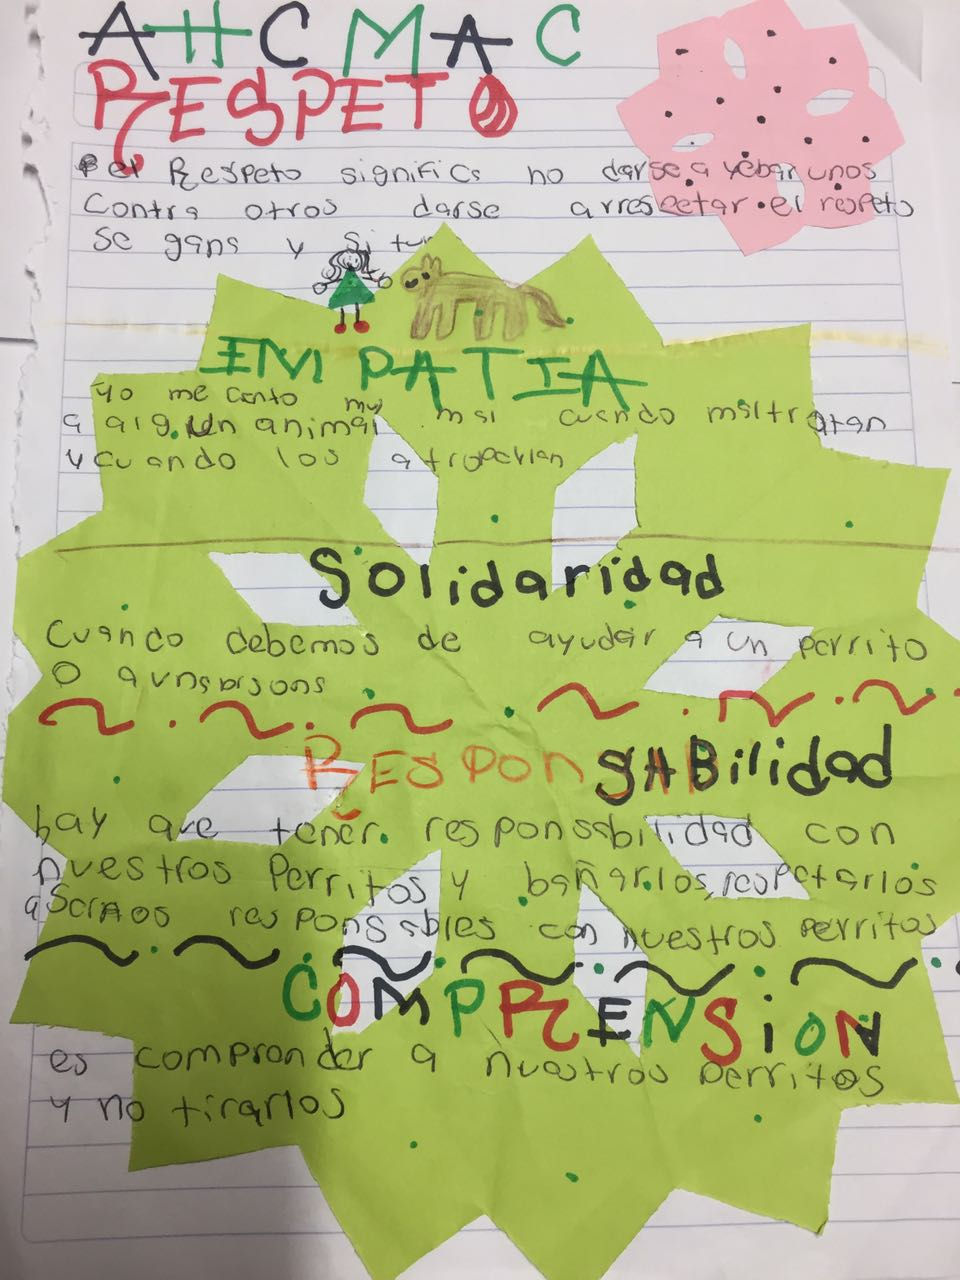 AHCMAC
RESPETO
el Respeto significa no darse a unos
contra otros darse arrespetar el respeto
se gana y si tu
EMPATIA
yo me canto muy mal cuando maltratan
a alguen animal
y cuando los
Solidaridad
Cuando debemos de ayudar a un perrito
O
RESPONSABilidad
hay que tener responsabilidad con
nuestros Perritos y bañarlos, respetarlos
responsables con nuestros perritos
COMPRENSiON
es comprender a nuestros perritos
y no tirarlos